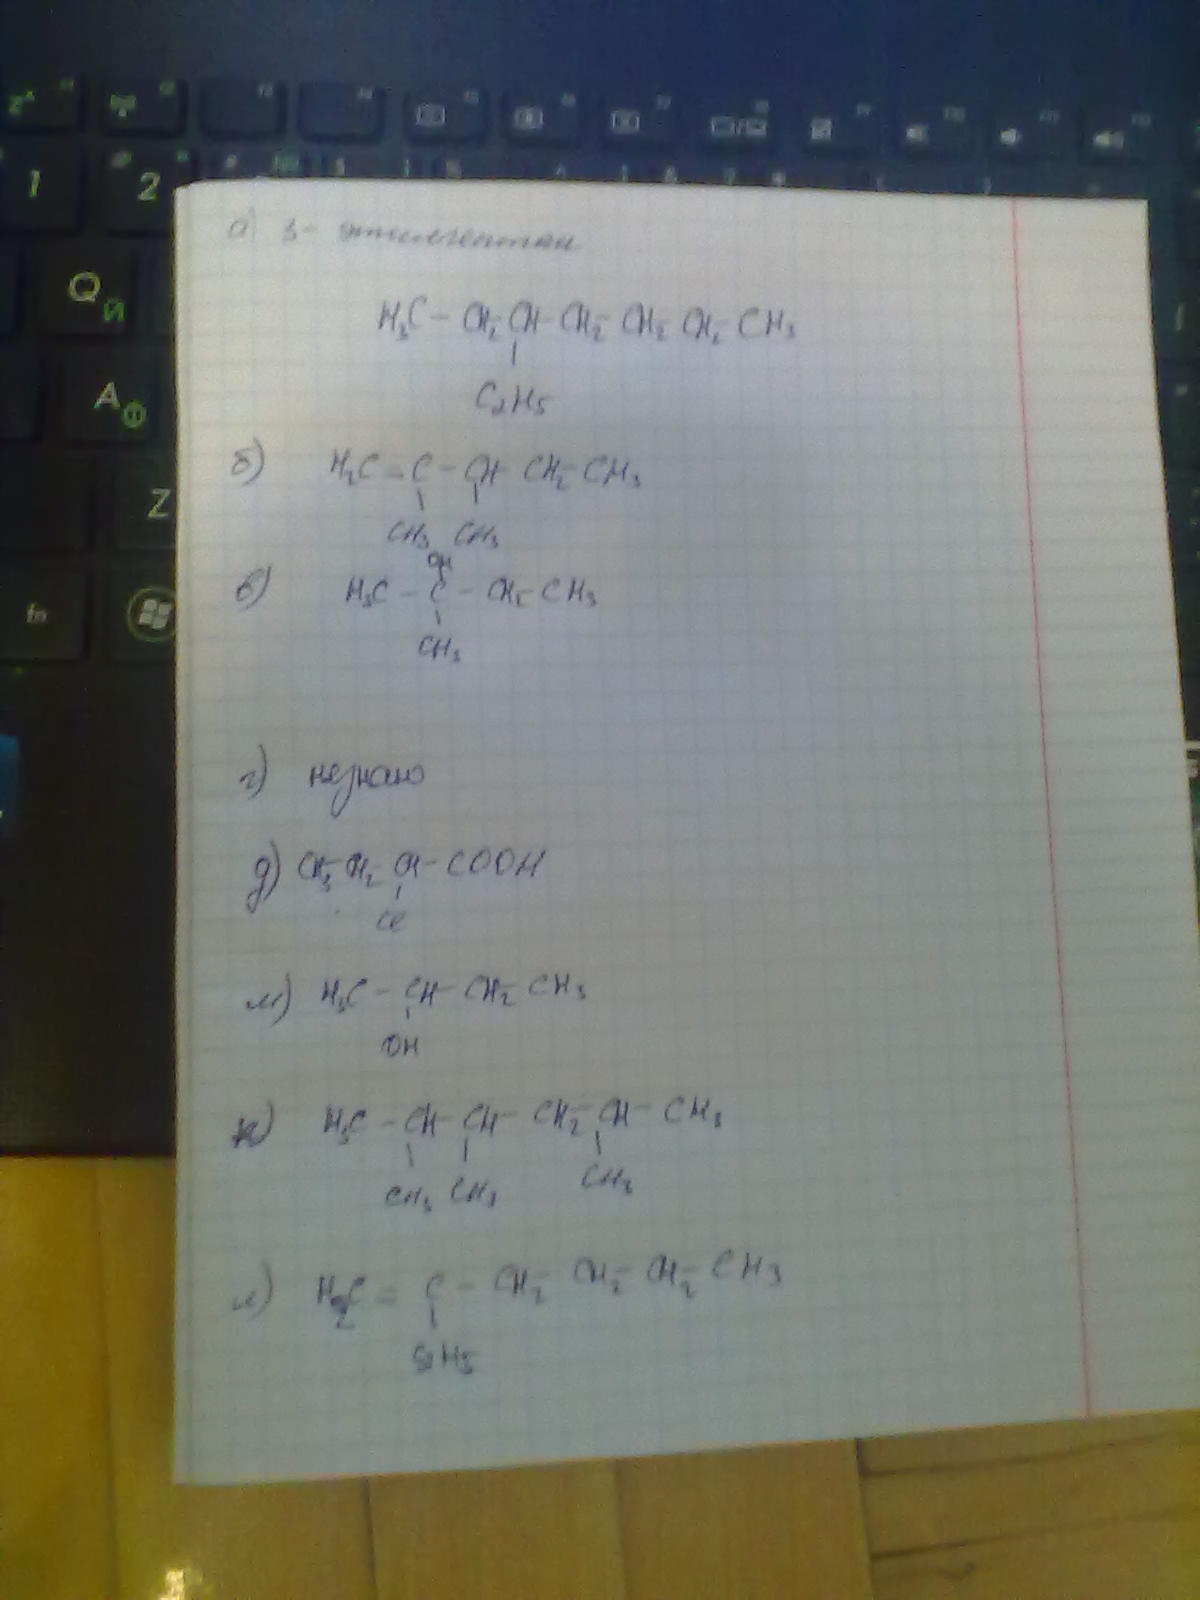 а) 3- этилгептан
H₃C - CH₂- CH - CH₂- CH₂- CH₂- CH₃
C₂H₅
б) H₂C = C - CH - CH₂- CH₃
CH₃ CH₃
OH
в) H₃C - C - CH₂- CH₃
CH₃
г) незнаю
д) CH₃- CH₂- CH - COOH
Cl
м) H₃C - CH - CH₂- CH₃
OH
к) H₃C - CH - CH - CH₂- CH - CH₃
CH₃ CH₃ CH₃
л) H₂C = C - CH₂- CH₂- CH₂- CH₃
C₂H₅
1
2
Q
Й
A
Ф
Z
fn